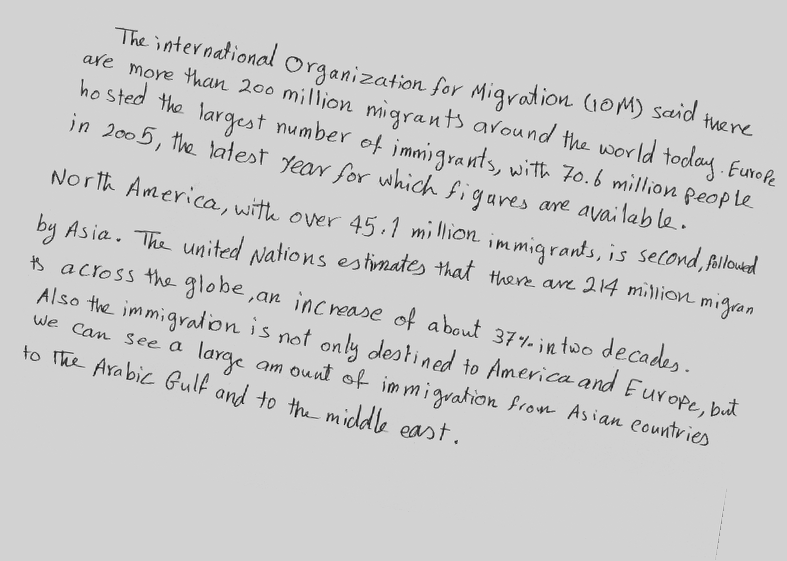 The international Organization for Migration (IOM) said there
are more than 200 million migrants around the world today. Europe
hosted the largest number of immigrants, with 70.6 million people
in 2005, the latest year for which figures are available.
North America, with over 45.1 million immigrants, is second, followed
by Asia. The united Nations estimates that there are 214 million migran
ts across the globe, an increase of about 37% in two decades.
Also the immigration is not only destined to America and Europe, but
we can see a large amount of immigration from Asian countries
to the Arabic Gulf and to the middle east.